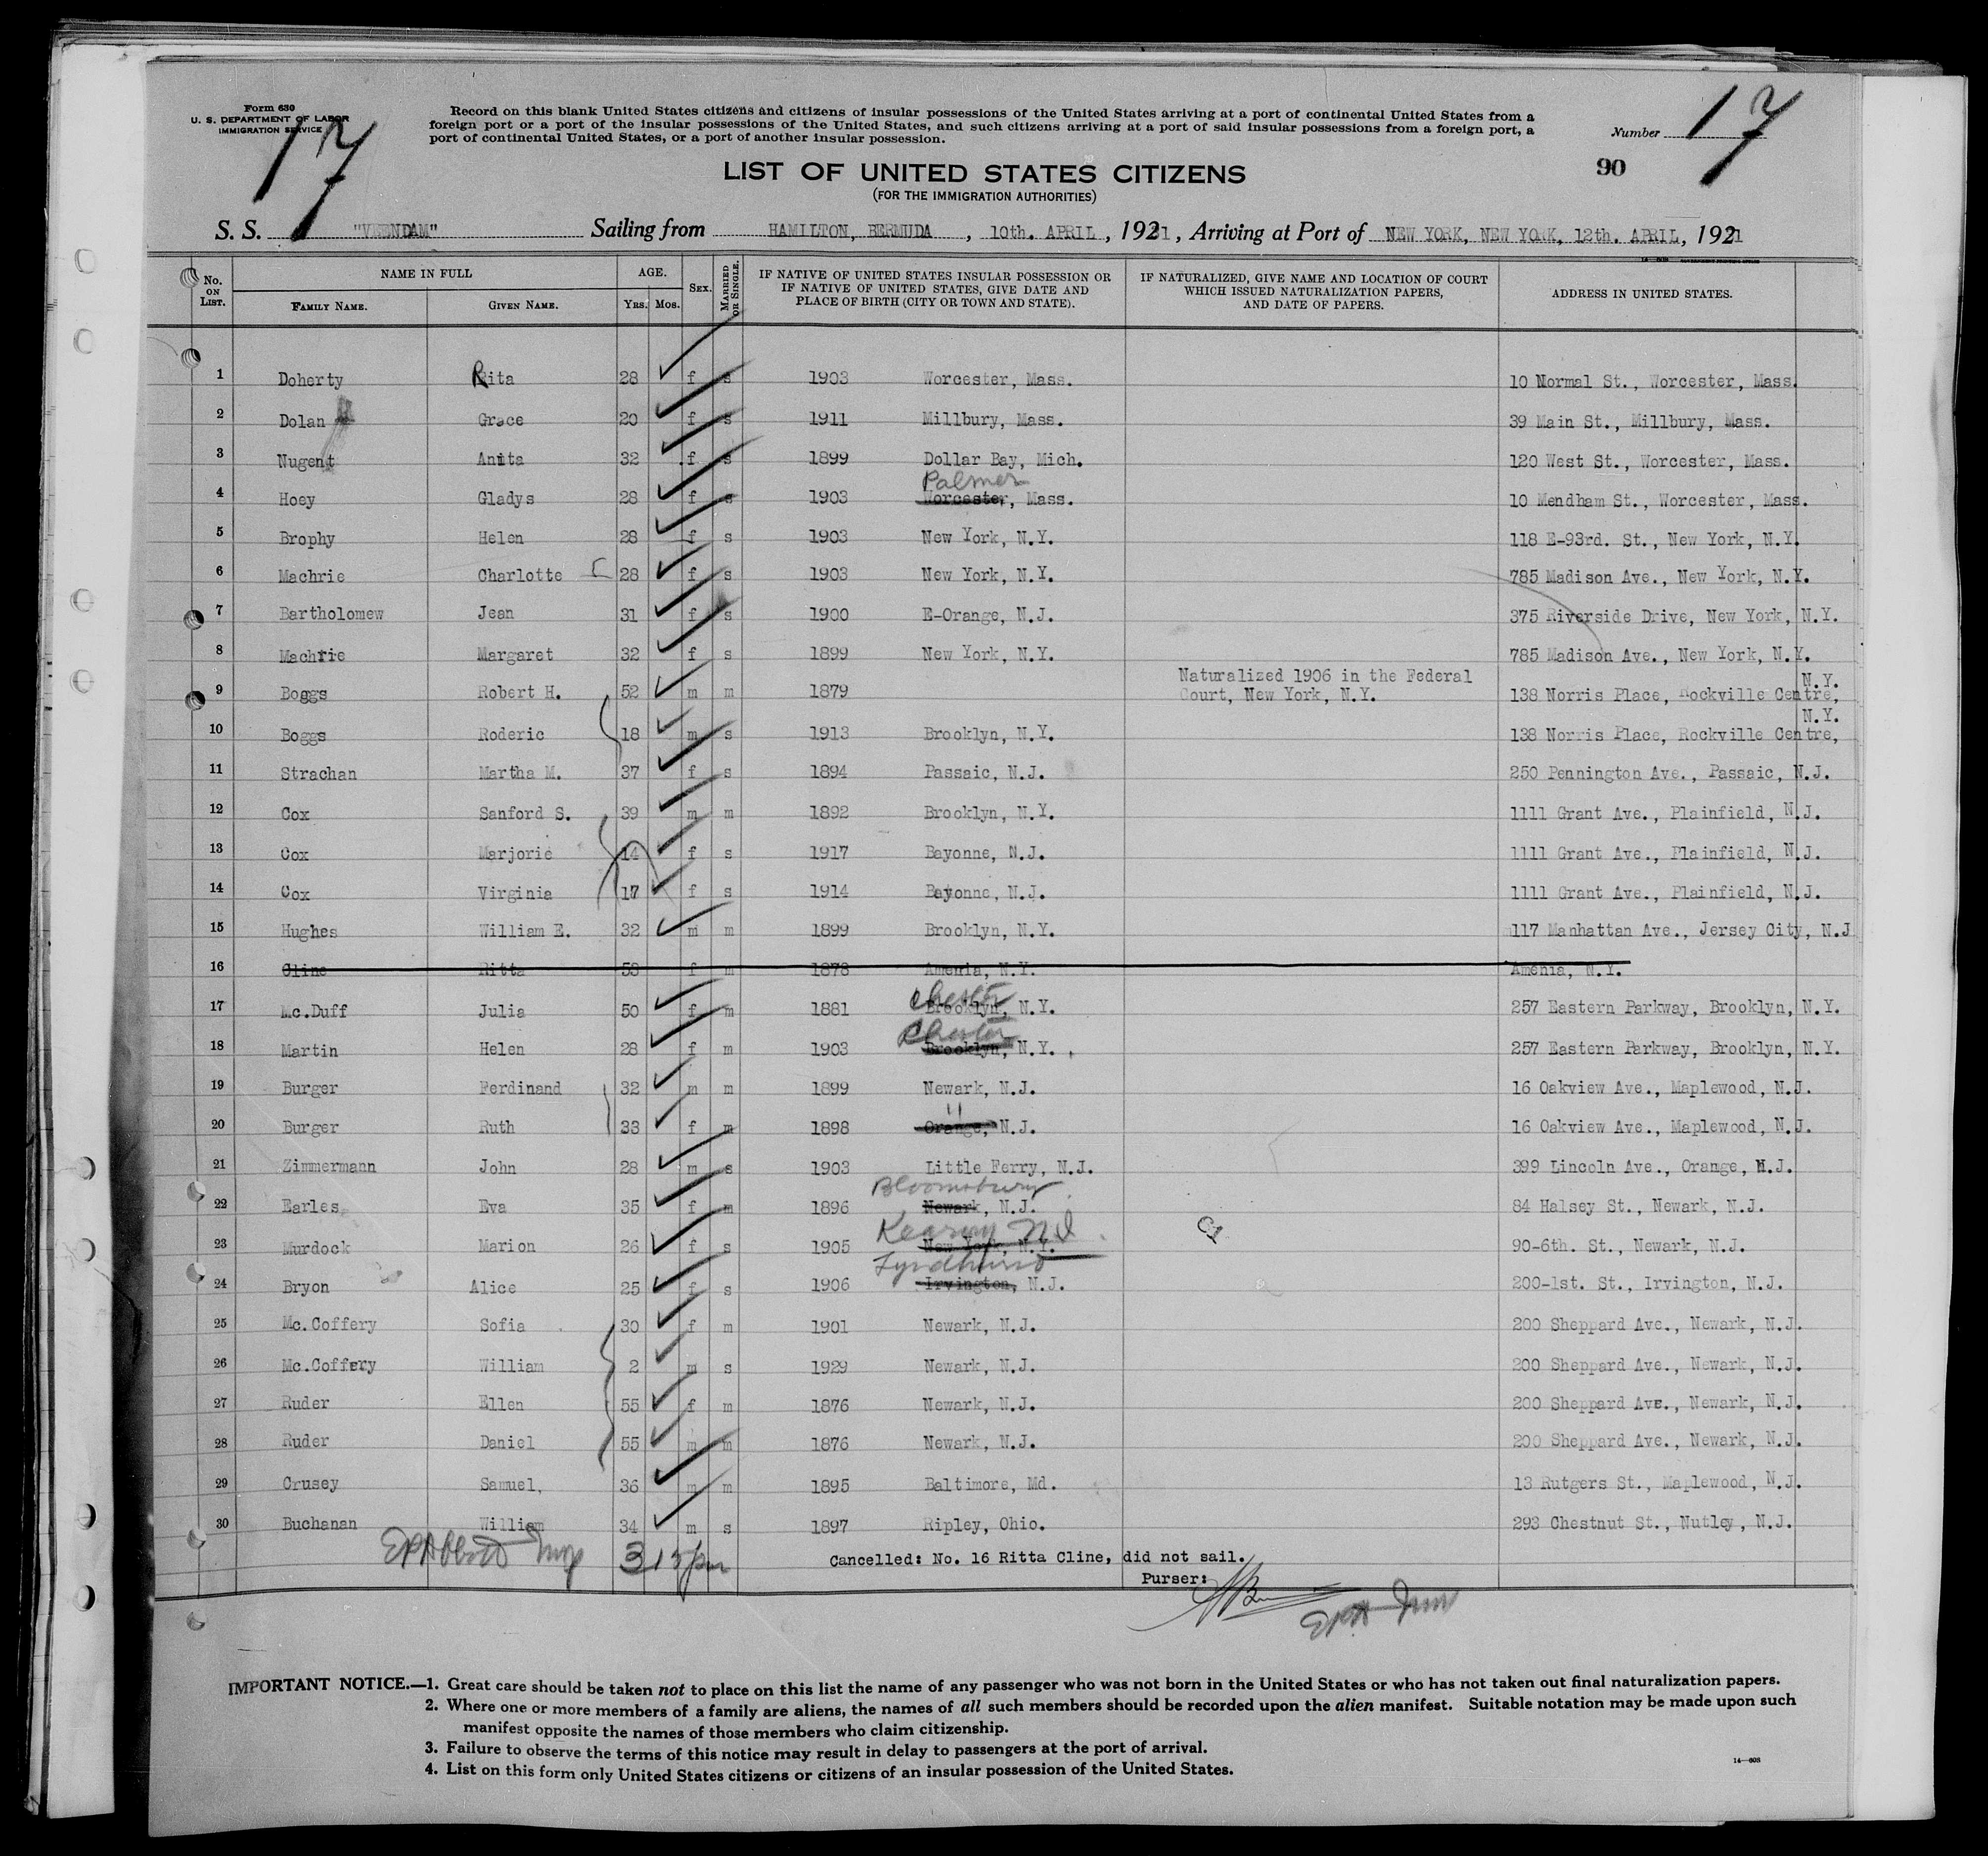 Form 630
U. S. DEPARTMENT OF LABOR
IMMIGRATION SERVICE
17
Record on this blank United States citizens and citizens of insular possessions of the United States arriving at a port of continental United States from a
foreign port or a port of the insular possessions of the United States, and such citizens arriving at a port of said insular possessions from a foreign port, a
port of continental United States, or a port of another insular possession.
Number 17
90
LIST OF UNITED STATES CITIZENS
(FOR THE IMMIGRATION AUTHORITIES)
S. S. "VEENDAM" Sailing from HAMILTON, BERMUDA, 10th. APRIL, 1931, Arriving at Port of NEW YORK, NEW YORK, 12th. APRIL, 1931
No. ON LIST. NAME IN FULL FAMILY NAME. GIVEN NAME. AGE. Yrs. Mos. SEX. MARRIED OR SINGLE. IF NATIVE OF UNITED STATES INSULAR POSSESSION OR IF NATIVE OF UNITED STATES, GIVE DATE AND PLACE OF BIRTH (CITY OR TOWN AND STATE). IF NATURALIZED, GIVE NAME AND LOCATION OF COURT WHICH ISSUED NATURALIZATION PAPERS, AND DATE OF PAPERS. ADDRESS IN UNITED STATES.
1 Doherty Rita 28 f s 1903 Worcester, Mass. 10 Normal St., Worcester, Mass.
2 Dolan Grace 20 f s 1911 Millbury, Mass. 39 Main St., Millbury, Mass.
3 Nugent Anita 32 f s 1899 Dollar Bay, Mich. 120 West St., Worcester, Mass.
Palmer
4 Hoey Gladys 28 f s 1903 Worcester, Mass. 10 Mendham St., Worcester, Mass.
5 Brophy Helen 28 f s 1903 New York, N.Y. 118 E-93rd. St., New York, N.Y.
6 Machrie Charlotte 28 f s 1903 New York, N.Y. 785 Madison Ave., New York, N.Y.
7 Bartholomew Jean 31 f s 1900 E-Orange, N.J. 375 Riverside Drive, New York, N.Y.
8 Machrie Margaret 32 f s 1899 New York, N.Y. 785 Madison Ave., New York, N.Y.
Naturalized 1906 in the Federal N.Y.
9 Boggs Robert H. 52 m m 1879 Court, New York, N.Y. 138 Norris Place, Rockville Centre,
N.Y.
10 Boggs Roderic 18 m s 1913 Brooklyn, N.Y. 138 Norris Place, Rockville Centre,
11 Strachan Martha M. 37 f s 1894 Passaic, N.J. 250 Pennington Ave., Passaic, N.J.
12 Cox Sanford S. 39 m m 1892 Brooklyn, N.Y. 1111 Grant Ave., Plainfield, N.J.
13 Cox Marjorie 14 f s 1917 Bayonne, N.J. 1111 Grant Ave., Plainfield, N.J.
14 Cox Virginia 17 f s 1914 Bayonne, N.J. 1111 Grant Ave., Plainfield, N.J.
15 Hughes William E. 32 m m 1899 Brooklyn, N.Y. 117 Manhattan Ave., Jersey City, N.J
16 Cline Ritta 53 f m 1878 Amenia, N.Y. Amenia, N.Y.
Chester
17 Mc.Duff Julia 50 f m 1881 Brooklyn, N.Y. 257 Eastern Parkway, Brooklyn, N.Y.
Chester
18 Martin Helen 28 f m 1903 Brooklyn, N.Y. 257 Eastern Parkway, Brooklyn, N.Y.
19 Burger Ferdinand 32 m m 1899 Newark, N.J. 16 Oakview Ave., Maplewood, N.J.
"
20 Burger Ruth 33 f m 1898 Orange, N.J. 16 Oakview Ave., Maplewood, N.J.
21 Zimmermann John 28 m s 1903 Little Ferry, N.J. 399 Lincoln Ave., Orange, N.J.
Bloomsbury
22 Earles Eva 35 f m 1896 Newark, N.J. 84 Halsey St., Newark, N.J.
Kearny NJ
23 Murdock Marion 26 f s 1905 New York, N.Y. 90-6th. St., Newark, N.J.
Lyndhurst
24 Bryon Alice 25 f s 1906 Irvington, N.J. 200-1st. St., Irvington, N.J.
25 Mc.Coffery Sofia 30 f m 1901 Newark, N.J. 200 Sheppard Ave., Newark, N.J.
26 Mc.Coffery William 2 m s 1929 Newark, N.J. 200 Sheppard Ave., Newark, N.J.
27 Ruder Ellen 55 f m 1876 Newark, N.J. 200 Sheppard Ave., Newark, N.J.
28 Ruder Daniel 55 m m 1876 Newark, N.J. 200 Sheppard Ave., Newark, N.J.
29 Crusey Samuel, 36 m m 1895 Baltimore, Md. 13 Rutgers St., Maplewood, N.J.
30 Buchanan William 34 m s 1897 Ripley, Ohio. 293 Chestnut St., Nutley, N.J.
315pm
Cancelled: No. 16 Ritta Cline, did not sail.
Purser:
IMPORTANT NOTICE.—1. Great care should be taken not to place on this list the name of any passenger who was not born in the United States or who has not taken out final naturalization papers.
2. Where one or more members of a family are aliens, the names of all such members should be recorded upon the alien manifest. Suitable notation may be made upon such
manifest opposite the names of those members who claim citizenship.
3. Failure to observe the terms of this notice may result in delay to passengers at the port of arrival.
4. List on this form only United States citizens or citizens of an insular possession of the United States.
14—608